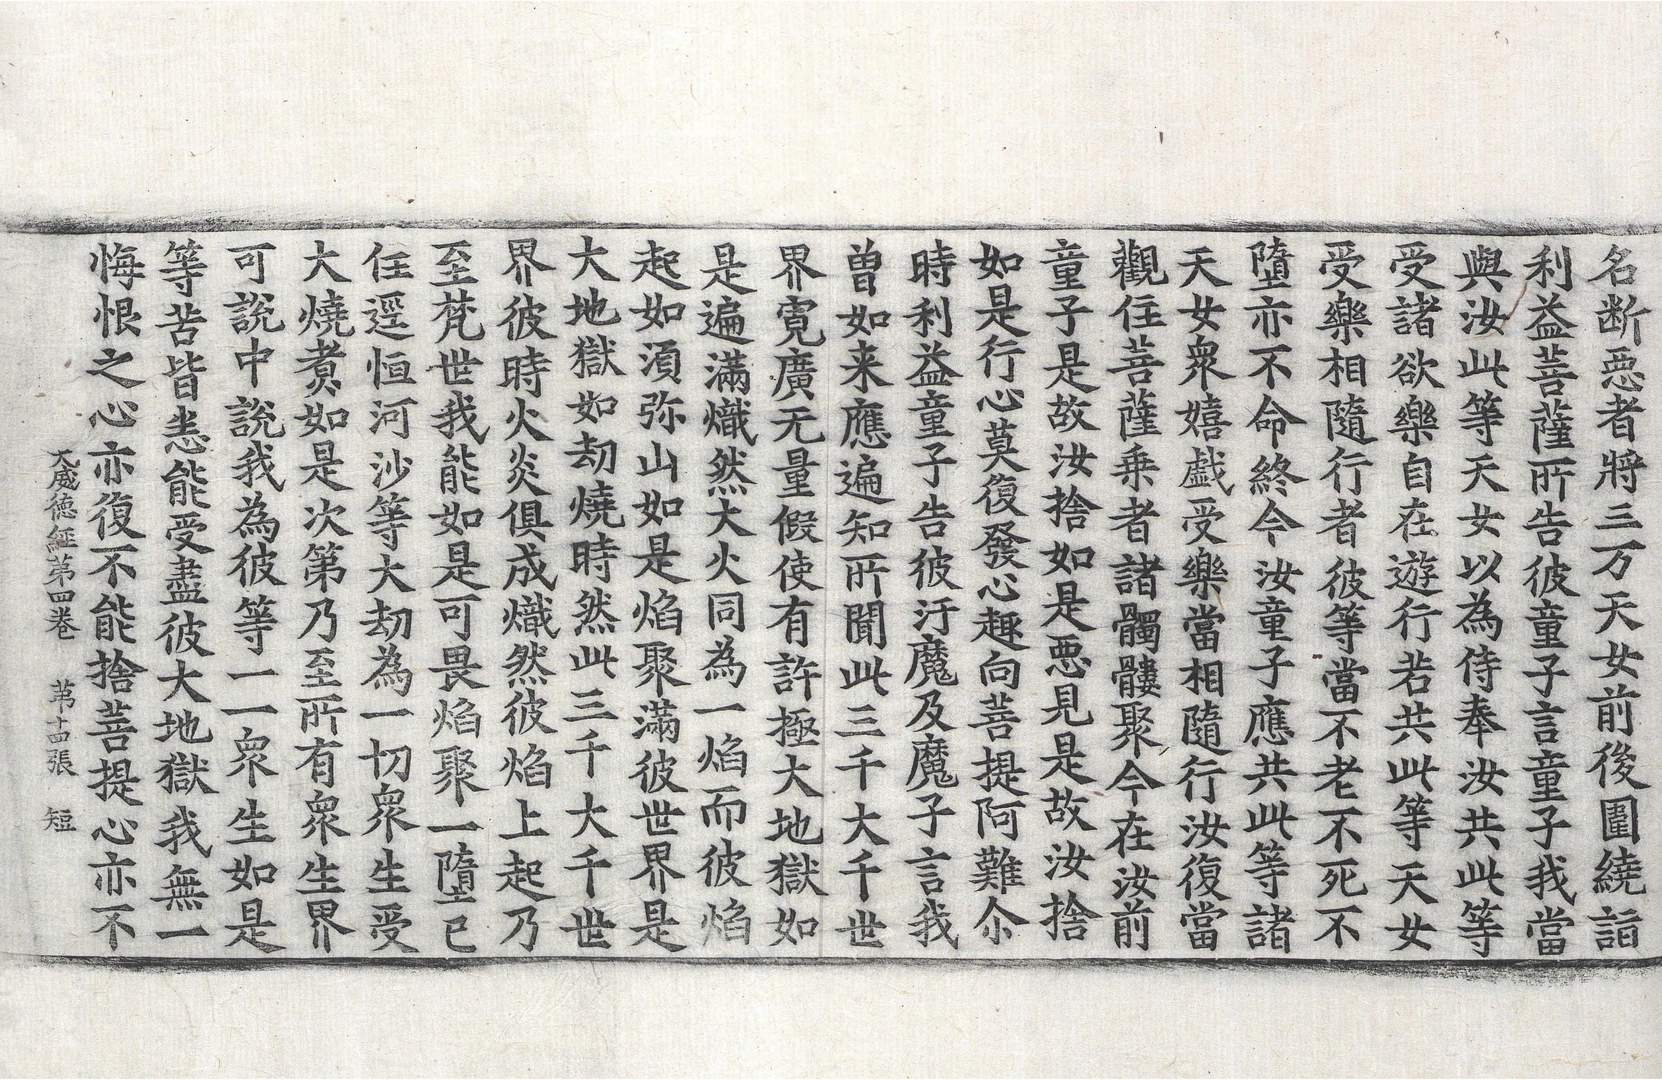 名断惡者將三万天女前後圍繞詣
利益菩薩所告彼童子言童子我當
與汝此等天女以為侍奉汝共此等
受諸欲樂自在遊行若共此等天女
受樂相隨行者彼等當不老不死不
墮亦不命終今汝童子應共此等諸
天女衆嬉戯受樂當相隨行汝復當
觀住菩薩乗者諸髑髏聚今在汝前
童子是故汝捨如是悪見是故汝捨
如是行心莫復發心趣向菩提阿難尒
時利益童子告彼汙魔及魔子言我
曽如来應遍知所聞此三千大千世
界寛廣无量假使有許極大地獄如
是遍滿熾然大火同為一焰而彼焰
起如湏弥山如是焰聚滿彼世界是
大地獄如劫燒時然此三千大千世
界彼時火炎俱成熾然彼焰上起乃
至梵世我能如是可畏焰聚一墮已
住逕恒河沙等大劫為一切衆生受
大燒煮如是次第乃至所有衆生界
可說中說我為彼等一一衆生如是
等苦皆悉能受盡彼大地獄我無一
悔恨之心亦復不能捨菩提心亦不
大威德經第四卷 苐十四張 短